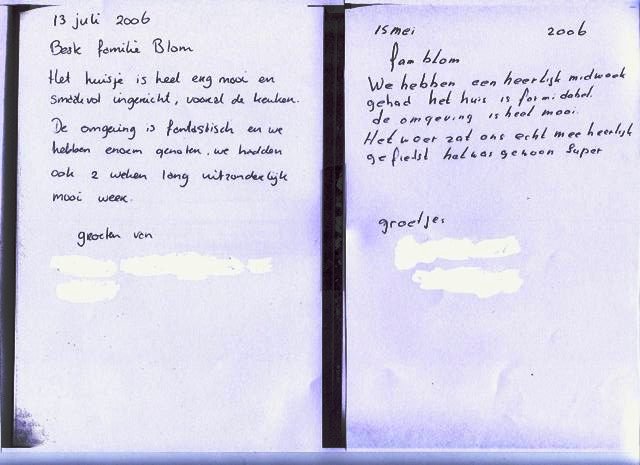 13 juli 2006
Beste familie Blom
Het huisje is heel erg mooi en
smaakvol ingericht, vooral de keuken.
De omgeving is fantastisch en we
hebben enorm genoten. we hadden
ook 2 weken lang uitzonderlijk
mooi weer.
groeten van
15 mei 2006
fam blom
We hebben een heerlijk midweek
gehad het huis is formidabel.
de omgeving is heel mooi.
Het weer zat ons echt mee heerlijk
gefietst het was gewoon super
groetjes